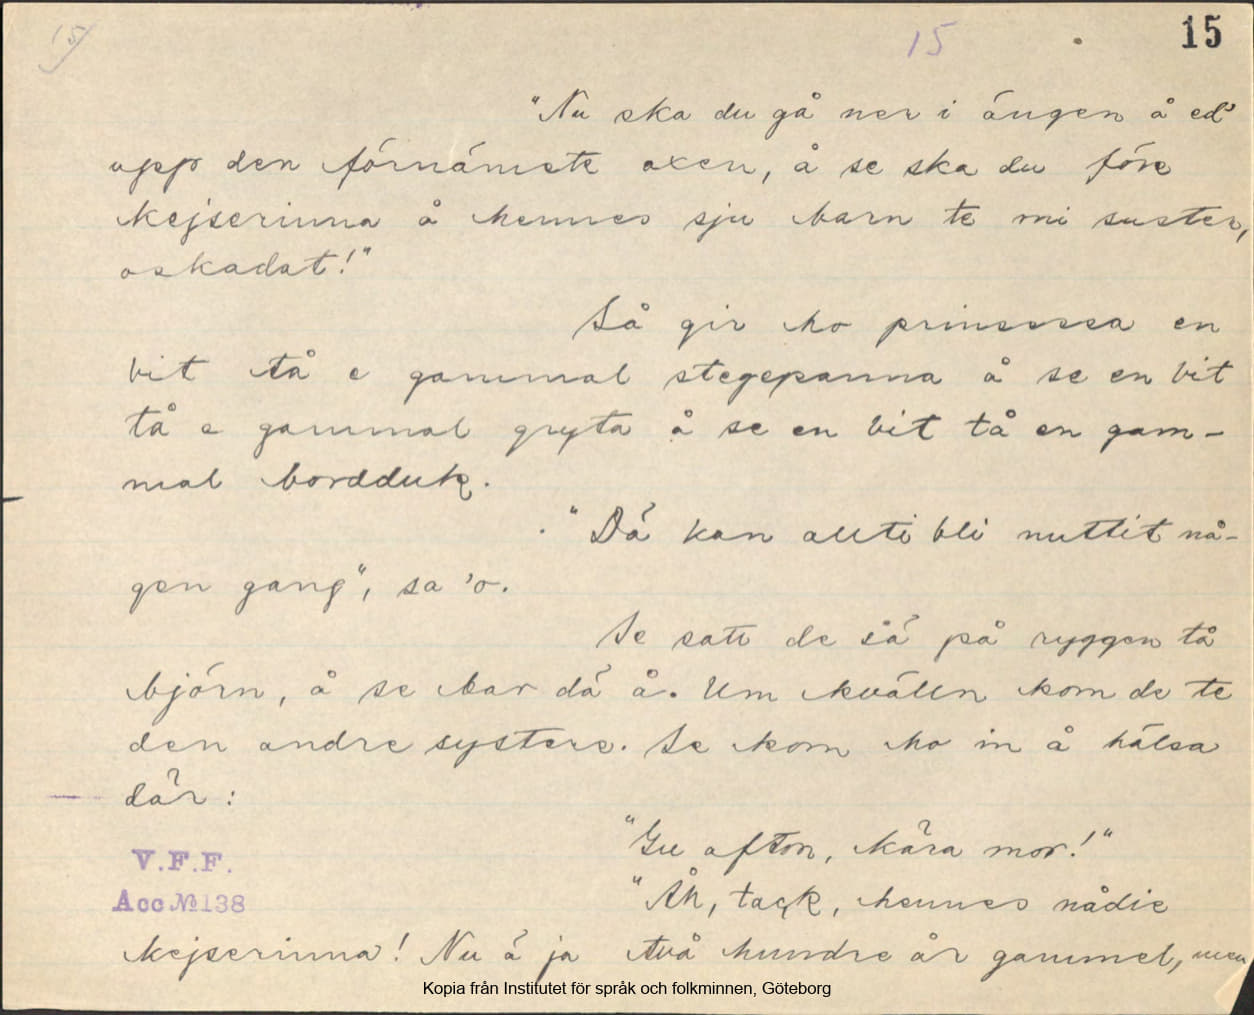 15 15 15
"Nu ska du gå ner i ängen å ed'
upp den förnämste oxen, å se ska du före
kejserinna å hennes sju barn te mi suster,
oskadat!"
Så gir ho prinsessa en
bit tå e gammal stegepanna å se en bit
tå e gammal gryta å se en bit tå en gam-
mal bordduk.
"Dä kan allti bli nuttit nå-
gen gang", sa 'o.
Se satt de så på ryggen tå
björn, å se bar dä å. Um kvälln kom de te
den andre systere. Se kom ho in å hälsa
där:
"Gu afton, kära mor!"
V.F.F.
"Åh, tack, hennes nådie
Acc № 138
kejserinna! Nu ä ja två hundre år gammel, men
Kopia från Institutet för språk och folkminnen, Göteborg